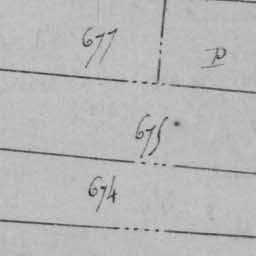 677
P
675
674